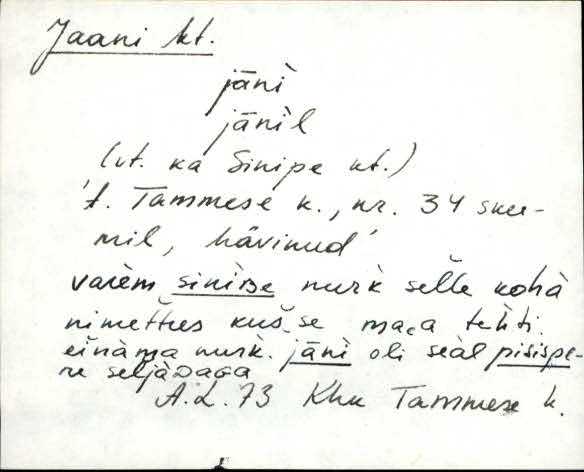 Jaani kt.
jāni
jānil
(vt. ka Sinipe kt.)
't. Tammese k., nr. 34 skee-
mil, hävinud'
varèm sinìʙe nurk selle kohà
nimettus kuš‿se maea tehti.
einama nurk. jāni oli seàl pisispe-
re seljàᴅaɢa
A.L. 73 Khk Tammese k.